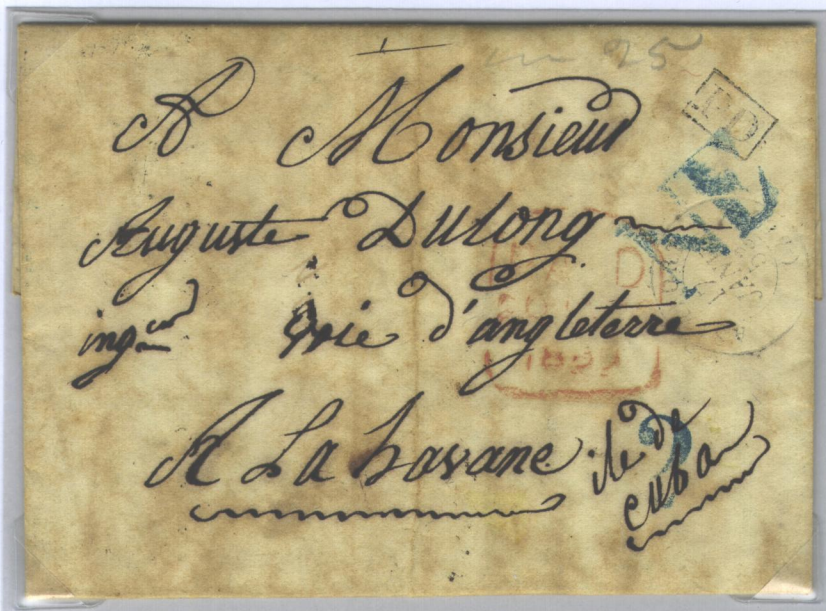 25
A Monsieur
P.D.
Auguste Dulong
PAID
ingeur voie d'angleterre
A La havane ile de
cuba
2